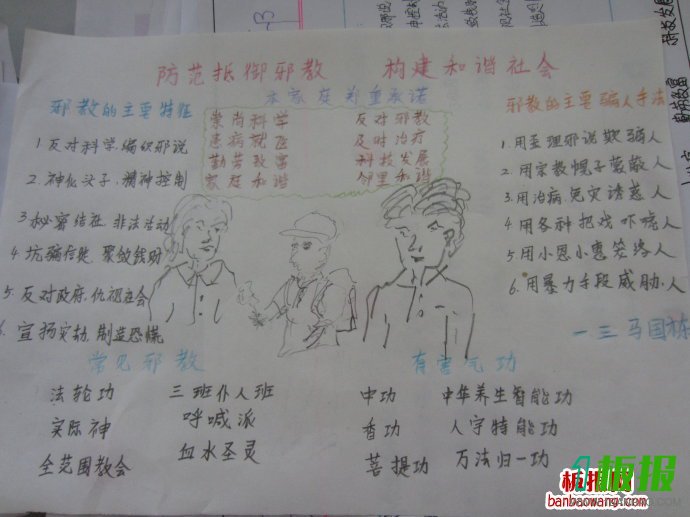 防范抵御邪教 构建和谐社会
本家庭郑重承诺
崇尚科学 反对邪教
患病就医 及时治疗
勤劳致富 科技发展
家庭和谐 邻里和谐
邪教的主要特征
1 反对科学,编织邪说
2、神化头子,精神控制
3 秘密结社,非法活动
4 坑骗信徒,聚敛钱财
5、反对政府,仇视社会
6、宣扬灾劫,制造恐慌
邪教的主要骗人手法
1.用歪理邪说欺骗人
2.用宗教幌子蒙蔽人
3.用治病免灾诱惑人
4.用各种把戏吓唬人
5.用小恩小惠笼络人
6.用暴力手段威胁人
一三马国栋
常见邪教
法轮功 三班仆人班
实际神 呼喊派
全范围教会 血水圣灵
有害气功
中功 中华养生智能功
香功 人宇特能功
菩提功 万法归一功
板报网
banbaowang.com
板报